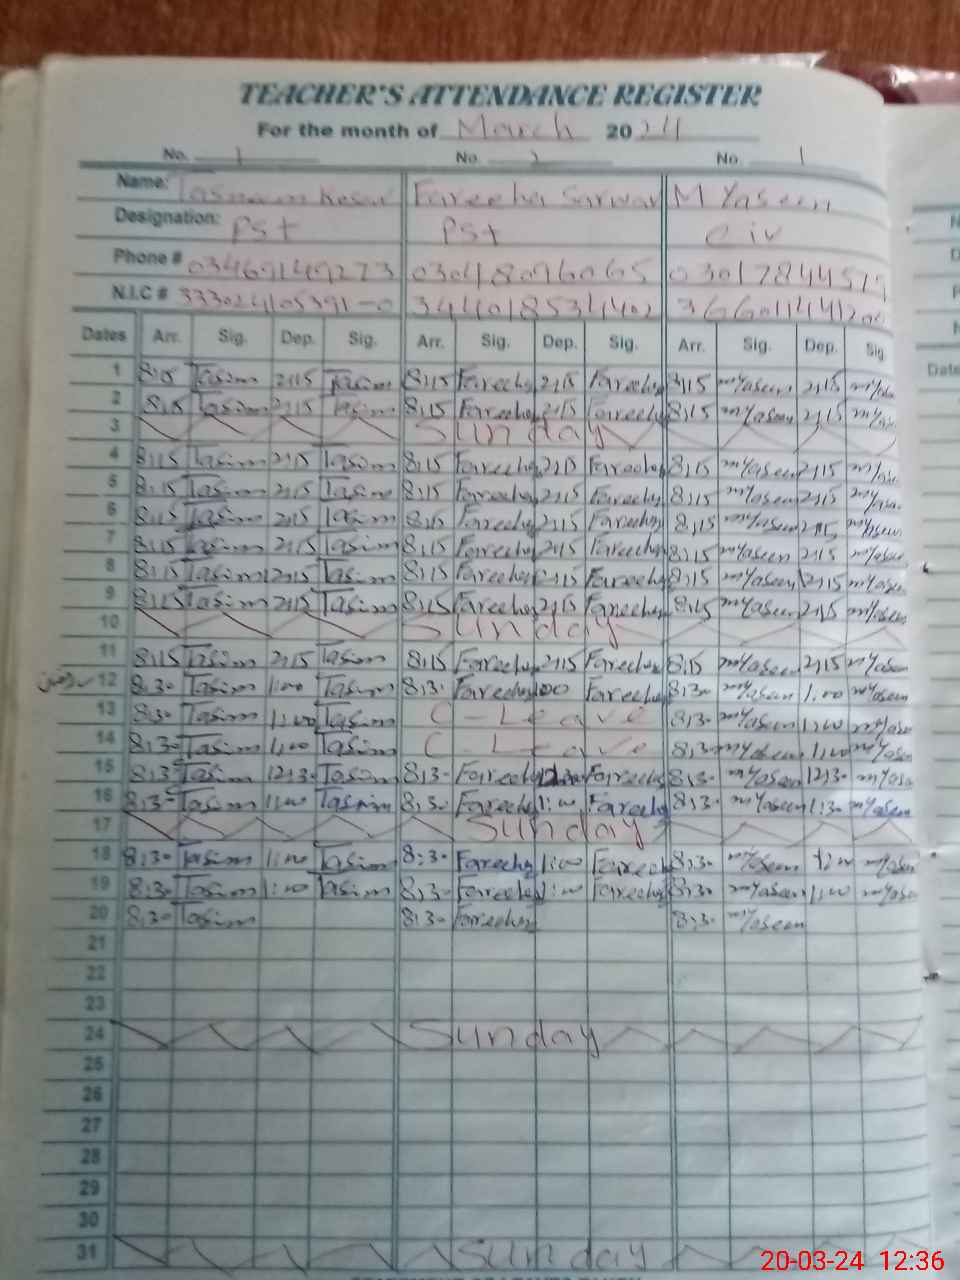 TEACHER'S ATTENDANCE REGISTER
For the month of March 2024
No. 1 No. 2 No. 1
Name: Fareeha Sarwar M Yaseen
Designation: PSt PSt C iv
Phone # 03469149273 03048096065
N.I.C #
Dates Arr. Sig. Dep. Sig. Arr. Sig. Dep. Sig. Arr. Sig. Dep. Sig
1 8:15 Tasim 2:15 Tasim 8:15 Fareeha 2:15 Fareeha 8:15 mYaseen 2:15
2 8:15 Tasim 2:15 Tasim 8:15 Fareeha 2:15 Fareeha 8:15 mYaseen 2:15
3 Sunday
4 8:15 Tasim 2:15 Tasim 8:15 Fareeha 2:15 Fareeha 8:15 mYaseen 2:15
5 8:15 Tasim 2:15 Tasim 8:15 Fareeha 2:15 Fareeha 8:15 mYaseen 2:15
6 8:15 Tasim 2:15 Tasim 8:15 Fareeha 2:15 Fareeha 8:15 mYaseen 2:15 mYaseen
7 8:15 Tasim 2:15 Tasim 8:15 Fareeha 2:15 Fareeha 8:15 mYaseen 2:15 mYaseen
8 8:15 Tasim 2:15 Tasim 8:15 Fareeha 2:15 Fareeha 8:15 mYaseen 2:15 mYaseen
9 8:15 Tasim 2:15 Tasim 8:15 Fareeha 2:15 Fareeha 8:15 mYaseen 2:15 mYaseen
10 Sunday
11 8:15 Tasim 2:15 Tasim 8:15 Fareeha 2:15 Fareeha 8:15 mYaseen 2:15 mYaseen
12 8:30 Tasim 1:00 Tasim 8:3. Fareeha Fareeha 8:30 mYaseen 1:00 mYaseen
13 8:30 Tasim 1:00 Tasim C - Leave 8:30 mYaseen 1:00 mYaseen
14 8:30 Tasim 1:00 Tasim C - Leave 8:30 mYaseen 1:00 mYaseen
15 8:30 Tasim 12:30 Tasim 8:30 Fareeha Fareeha 8:30 mYaseen 12:30 mYaseen
16 8:30 Tasim 1:00 Tasim 8:30 Fareeha 1:00 Fareeha 8:30 mYaseen 1:30 mYaseen
17 Sunday
18 8:30 Tasim 1:00 Tasim 8:30 Fareeha 1:00 Fareeha 8:30 mYaseen 1:00 mYaseen
19 8:30 Tasim 1:00 Tasim 8:30 Fareeha 1:00 Fareeha 8:30 mYaseen 1:00 mYaseen
20 8:30 Tasim 8:30 Fareeha 8:30 mYaseen
21
22
23
24 Sunday
25
26
27
28
29
30
31 Sunday
20-03-24 12:36